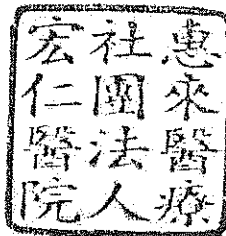 惠來醫療
社團法人
宏仁醫院